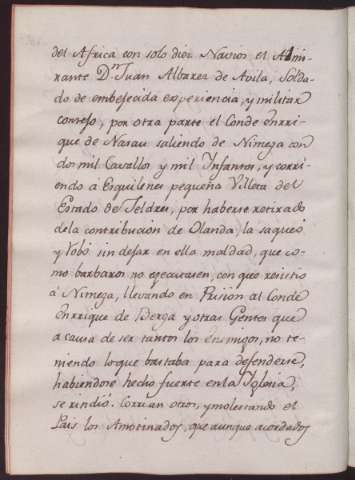 del Africa con solo diez Navios el Almi-
rante Dn Juan Albarez de Avila, Solda-
do de embejecida experiencia, y militar
consejo; por otra parte el Conde enrri-
que de Nasau saliendo de Nimega con
dos mil Cavallos y mil Infantes, y corri-
endo á Esquilenes pequeña Villeta del
Estado de Jeldres, por haberse retirado
de la contribucion de Olanda, la saqueó
y robó sin dejar en ella maldad, que co-
mo barbaros no egecutasen, con que
á Nimega, llevando en Prision al Conde
Enrrique de Berga y otras Gentes que
a causa de ser tantos los Enemigos, no te-
niendo lo que bastaba para defenderse,
habiendose hecho fuerte en la Iglesia,
se rindió. Corrian otros, y molestando el
Pais los Amotinados, que aunque acordados